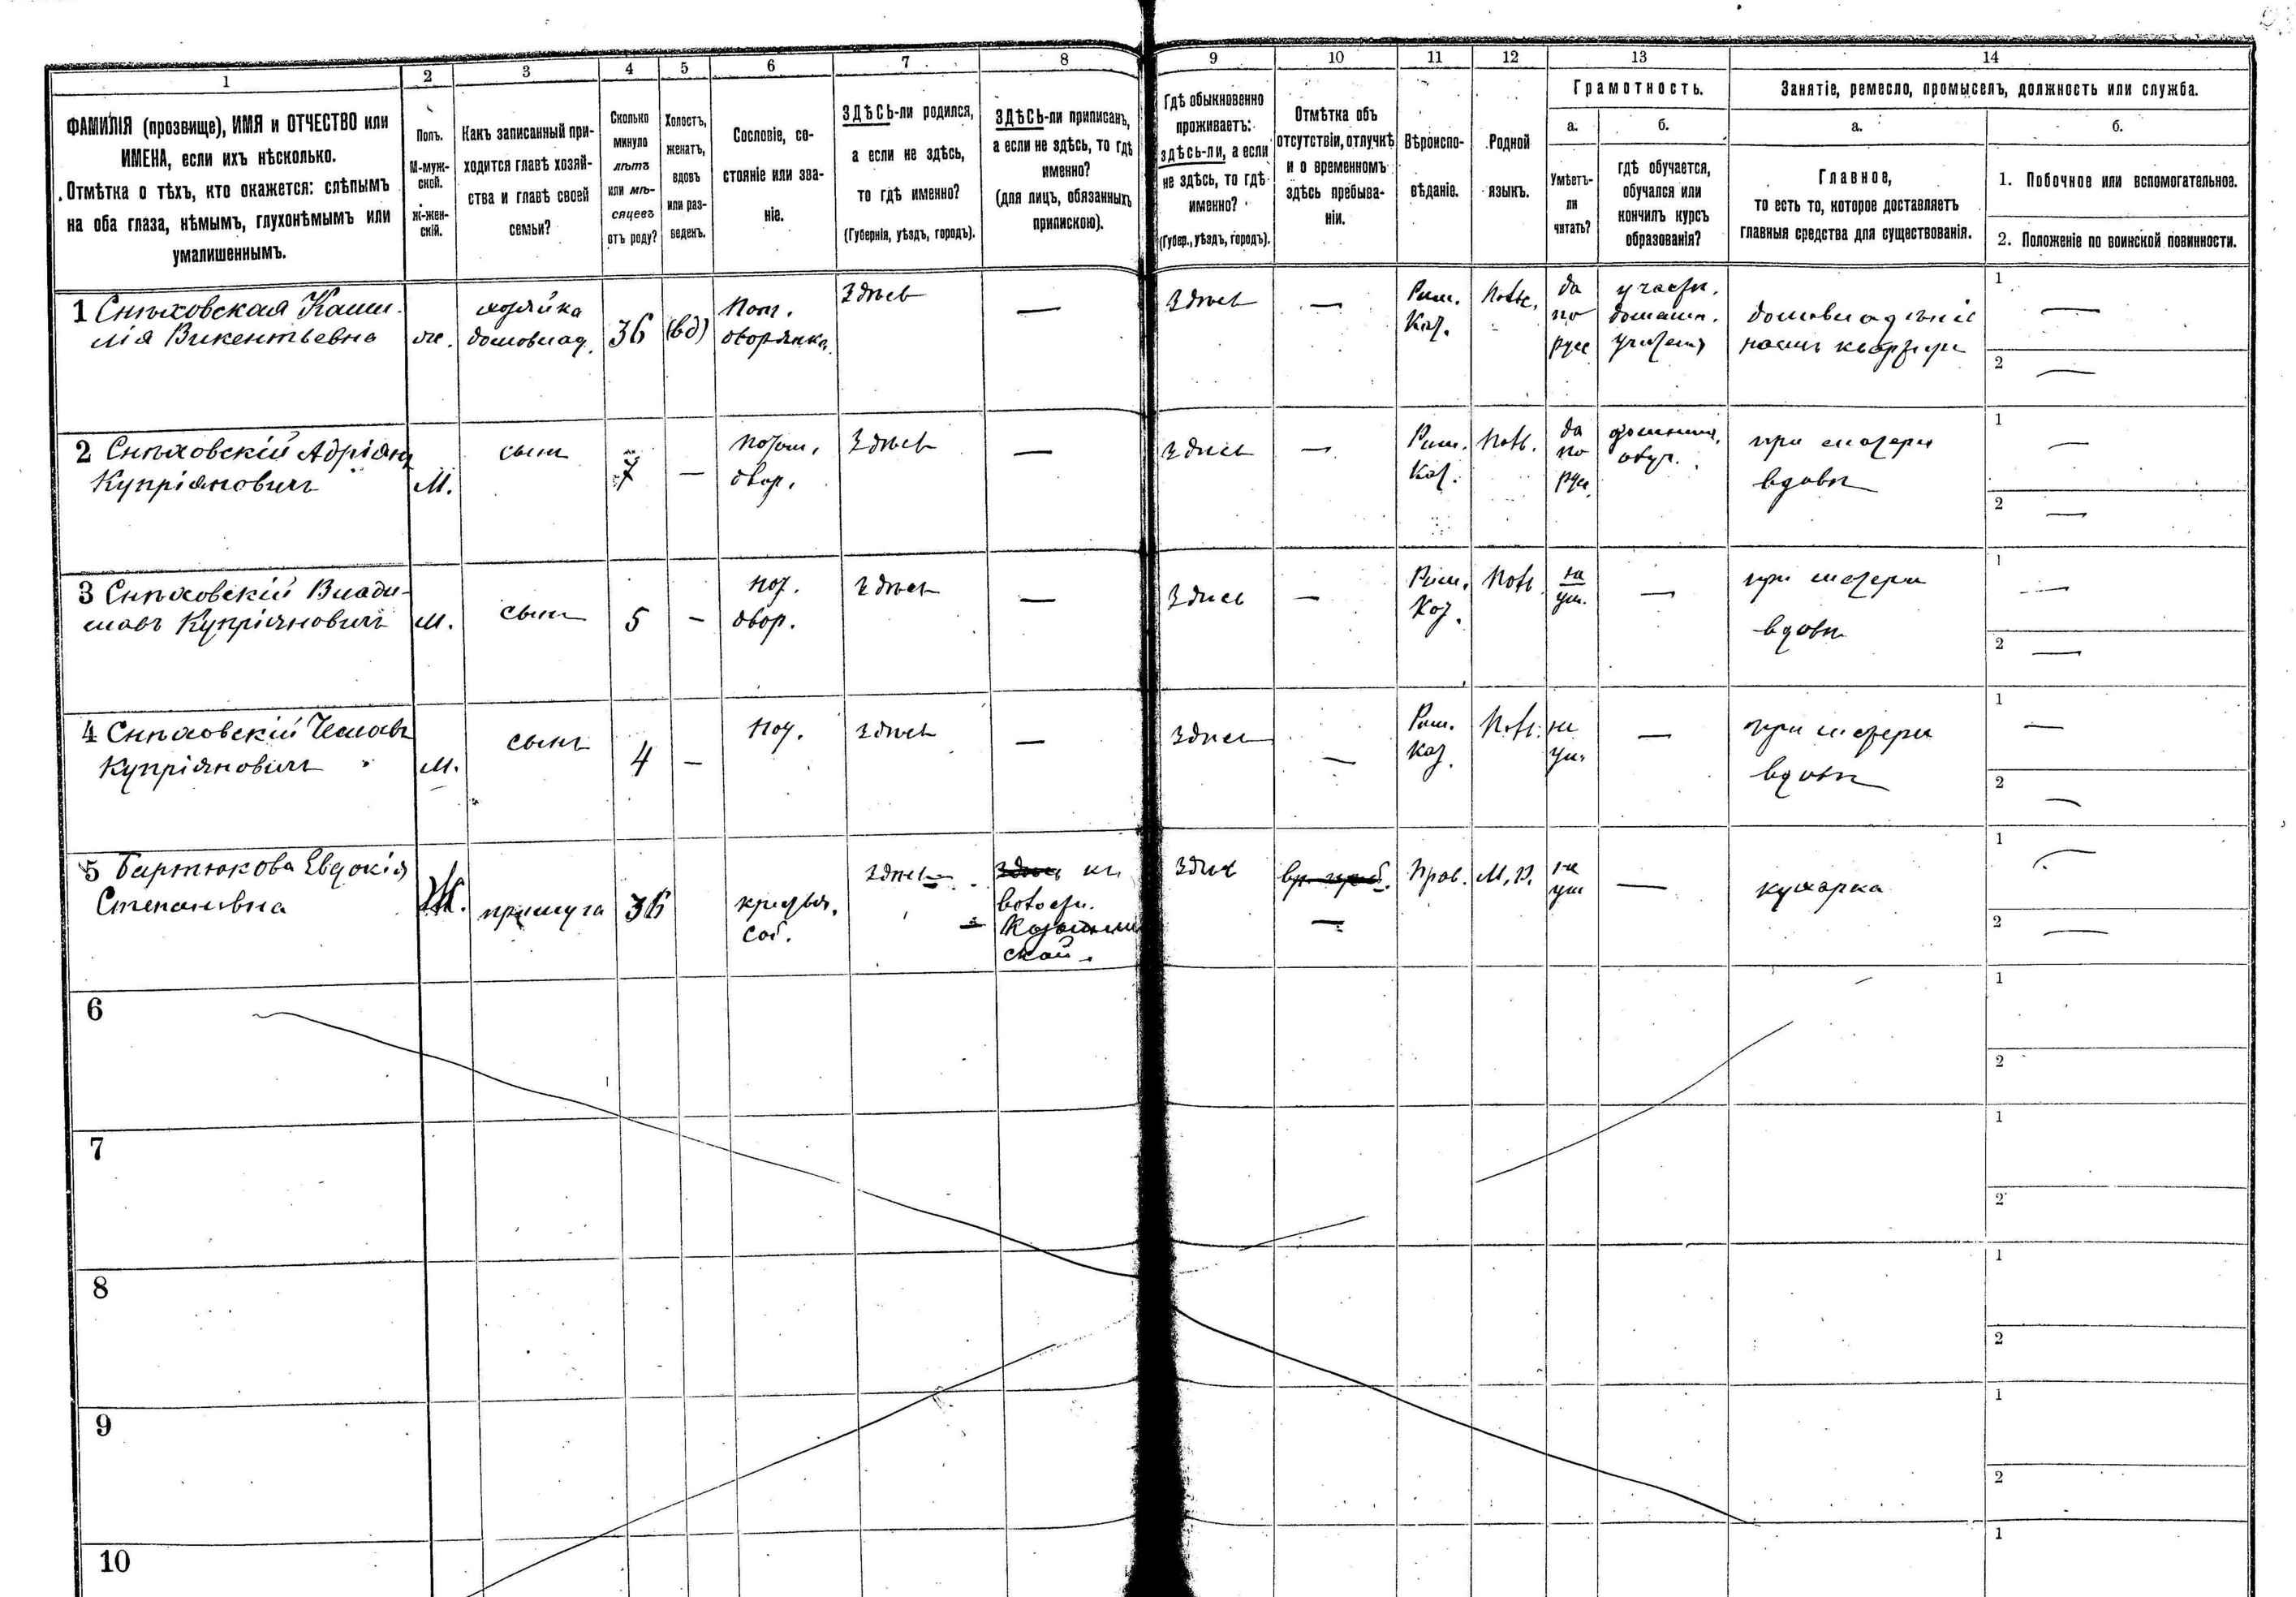 1
2
3
4
5
6
7
8
9
10
11
12
13
14
ФАМИЛІЯ (прозвище), ИМЯ и ОТЧЕСТВО или
ИМЕНА, если ихъ нѣсколько.
Отмѣтка о тѣхъ, кто окажется: слѣпымъ
на оба глаза, нѣмымъ, глухонѣмымъ или
умалишеннымъ.
Полъ.
М-муж-
ской.
Ж-жен-
скій.
Какъ записанный при-
ходится главѣ хозяй-
ства и главѣ своей
семьи?
Сколько
минуло
лѣтъ
или мѣ-
сяцевъ
отъ роду?
Холостъ,
женатъ,
вдовъ
или раз-
веденъ.
Сословіе, со-
стояніе или зва-
ніе.
ЗДѢСЬ-ли родился,
а если не здѣсь,
то гдѣ именно?
(Губернія, уѣздъ, городъ).
ЗДѢСЬ-ли приписанъ,
а если не здѣсь, то гдѣ
именно?
(для лицъ, обязанныхъ
припискою).
Гдѣ обыкновенно
проживаетъ:
здѣсь-ли, а если
не здѣсь, то гдѣ
именно?
(Губер., уѣздъ, городъ).
Отмѣтка объ
отсутствіи, отлучкѣ
и о временномъ
здѣсь пребыва-
ніи.
Вѣроиспо-
вѣданіе.
Родной
языкъ.
Грамотность.
а.
Умѣетъ-
ли
читать?
б.
гдѣ обучается,
обучался или
кончилъ курсъ
образованія?
Занятіе, ремесло, промыселъ, должность или служба.
а.
Главное,
то есть то, которое доставляетъ
главныя средства для существованія.
б.
1. Побочное или вспомогательное.
2. Положеніе по воинской повинности.
1 Снѣховская Ками-
лія Викентьевна
ж.
хозяйка
домовлад.
36
(вд)
Пот.
дворянка
Здѣсь
—
Здѣсь
—
Рим.
Кат.
Польс.
да
по
рус
домашн.
домовладѣніе
1 —
2 —
2 Снѣховскій Адріанъ
Купріяновичъ
М.
сынъ
7
—
Потом.
двор.
Здѣсь
—
Здѣсь
—
Рим.
Кат.
Поль.
да
по
рус.
при матери
вдовѣ
1 —
2 —
3 Снѣховскій Влади-
славъ Купріяновичъ
М.
сынъ
5
—
Пот.
двор.
Здѣсь
—
Здѣсь
—
Рим.
Кат.
Поль.
не
ум.
—
при матери
вдовѣ
1 —
2 —
4 Снѣховскій Чеславъ
Купріяновичъ
М.
сынъ
4
—
Пот.
Здѣсь
—
Здѣсь
—
Рим.
Кат.
Поль.
не
ум.
—
при матери
вдовѣ
1 —
2 —
5 Бартюкова Евдокія
Степановна
Ж.
прислуга
36
крестьян.
соб.
Здѣсь
волости
ской.
Здѣсь
—
Прав.
М. Р.
не
ум
—
кухарка
1 —
2 —
6
1
2
7
1
2
8
1
2
9
1
2
10
1